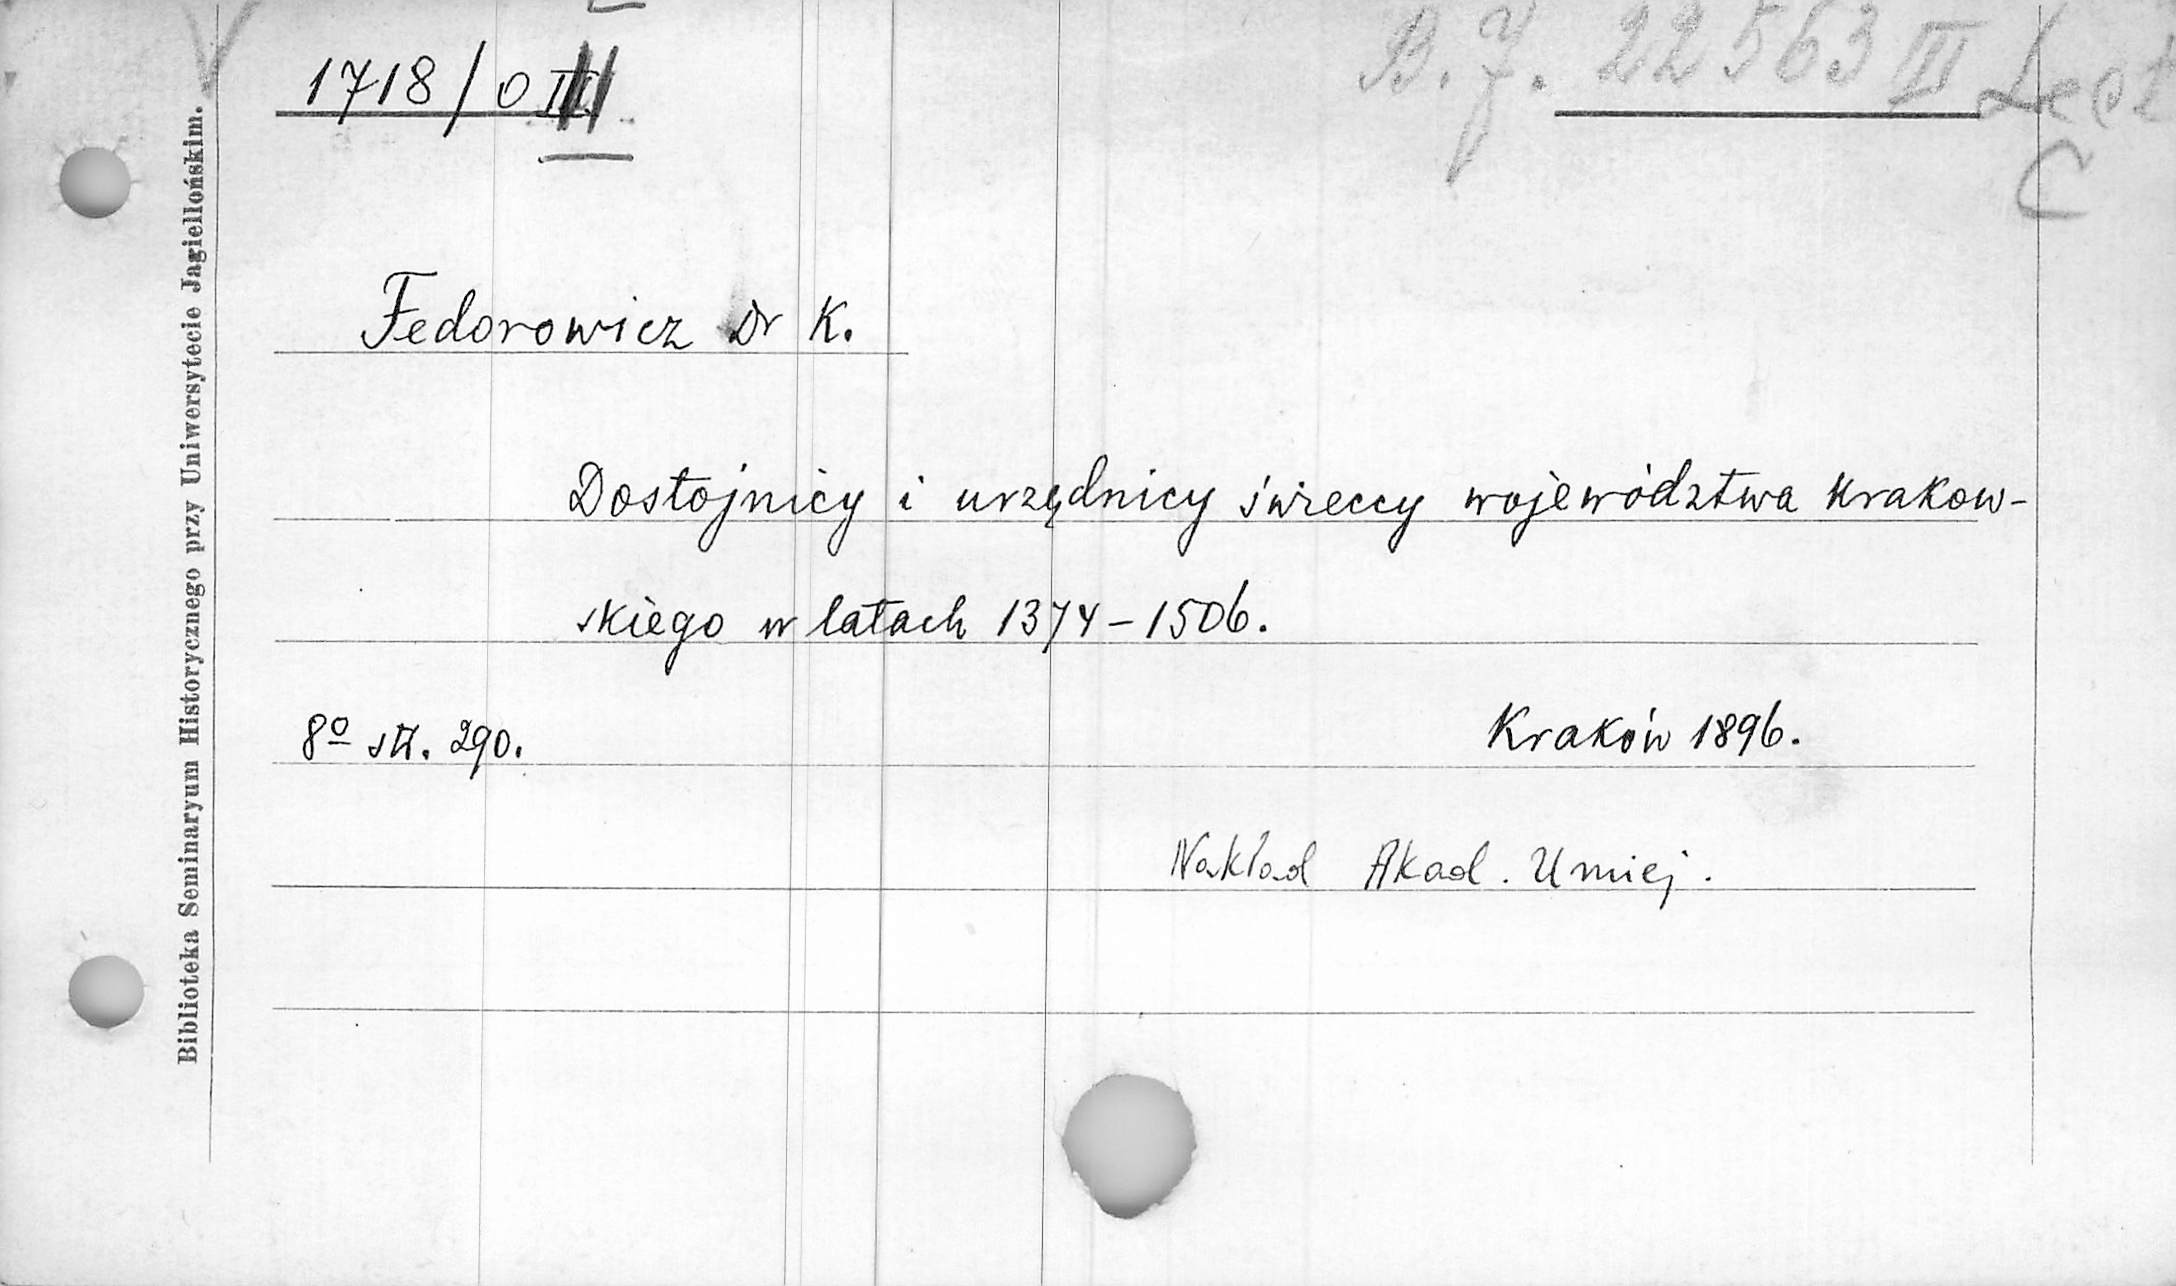 1718/0 II
B. J. 22563 III Lect
C
Fedorowicz Dr K.
Dostojnicy i urzędnicy świeccy województwa krakow-
skiego w latach 1374-1506.
8º str. 290.
Kraków 1896.
Nakład Akad. Umiej.
Biblioteka Seminaryum Historycznego przy Uniwersytecie Jagiellońskim.